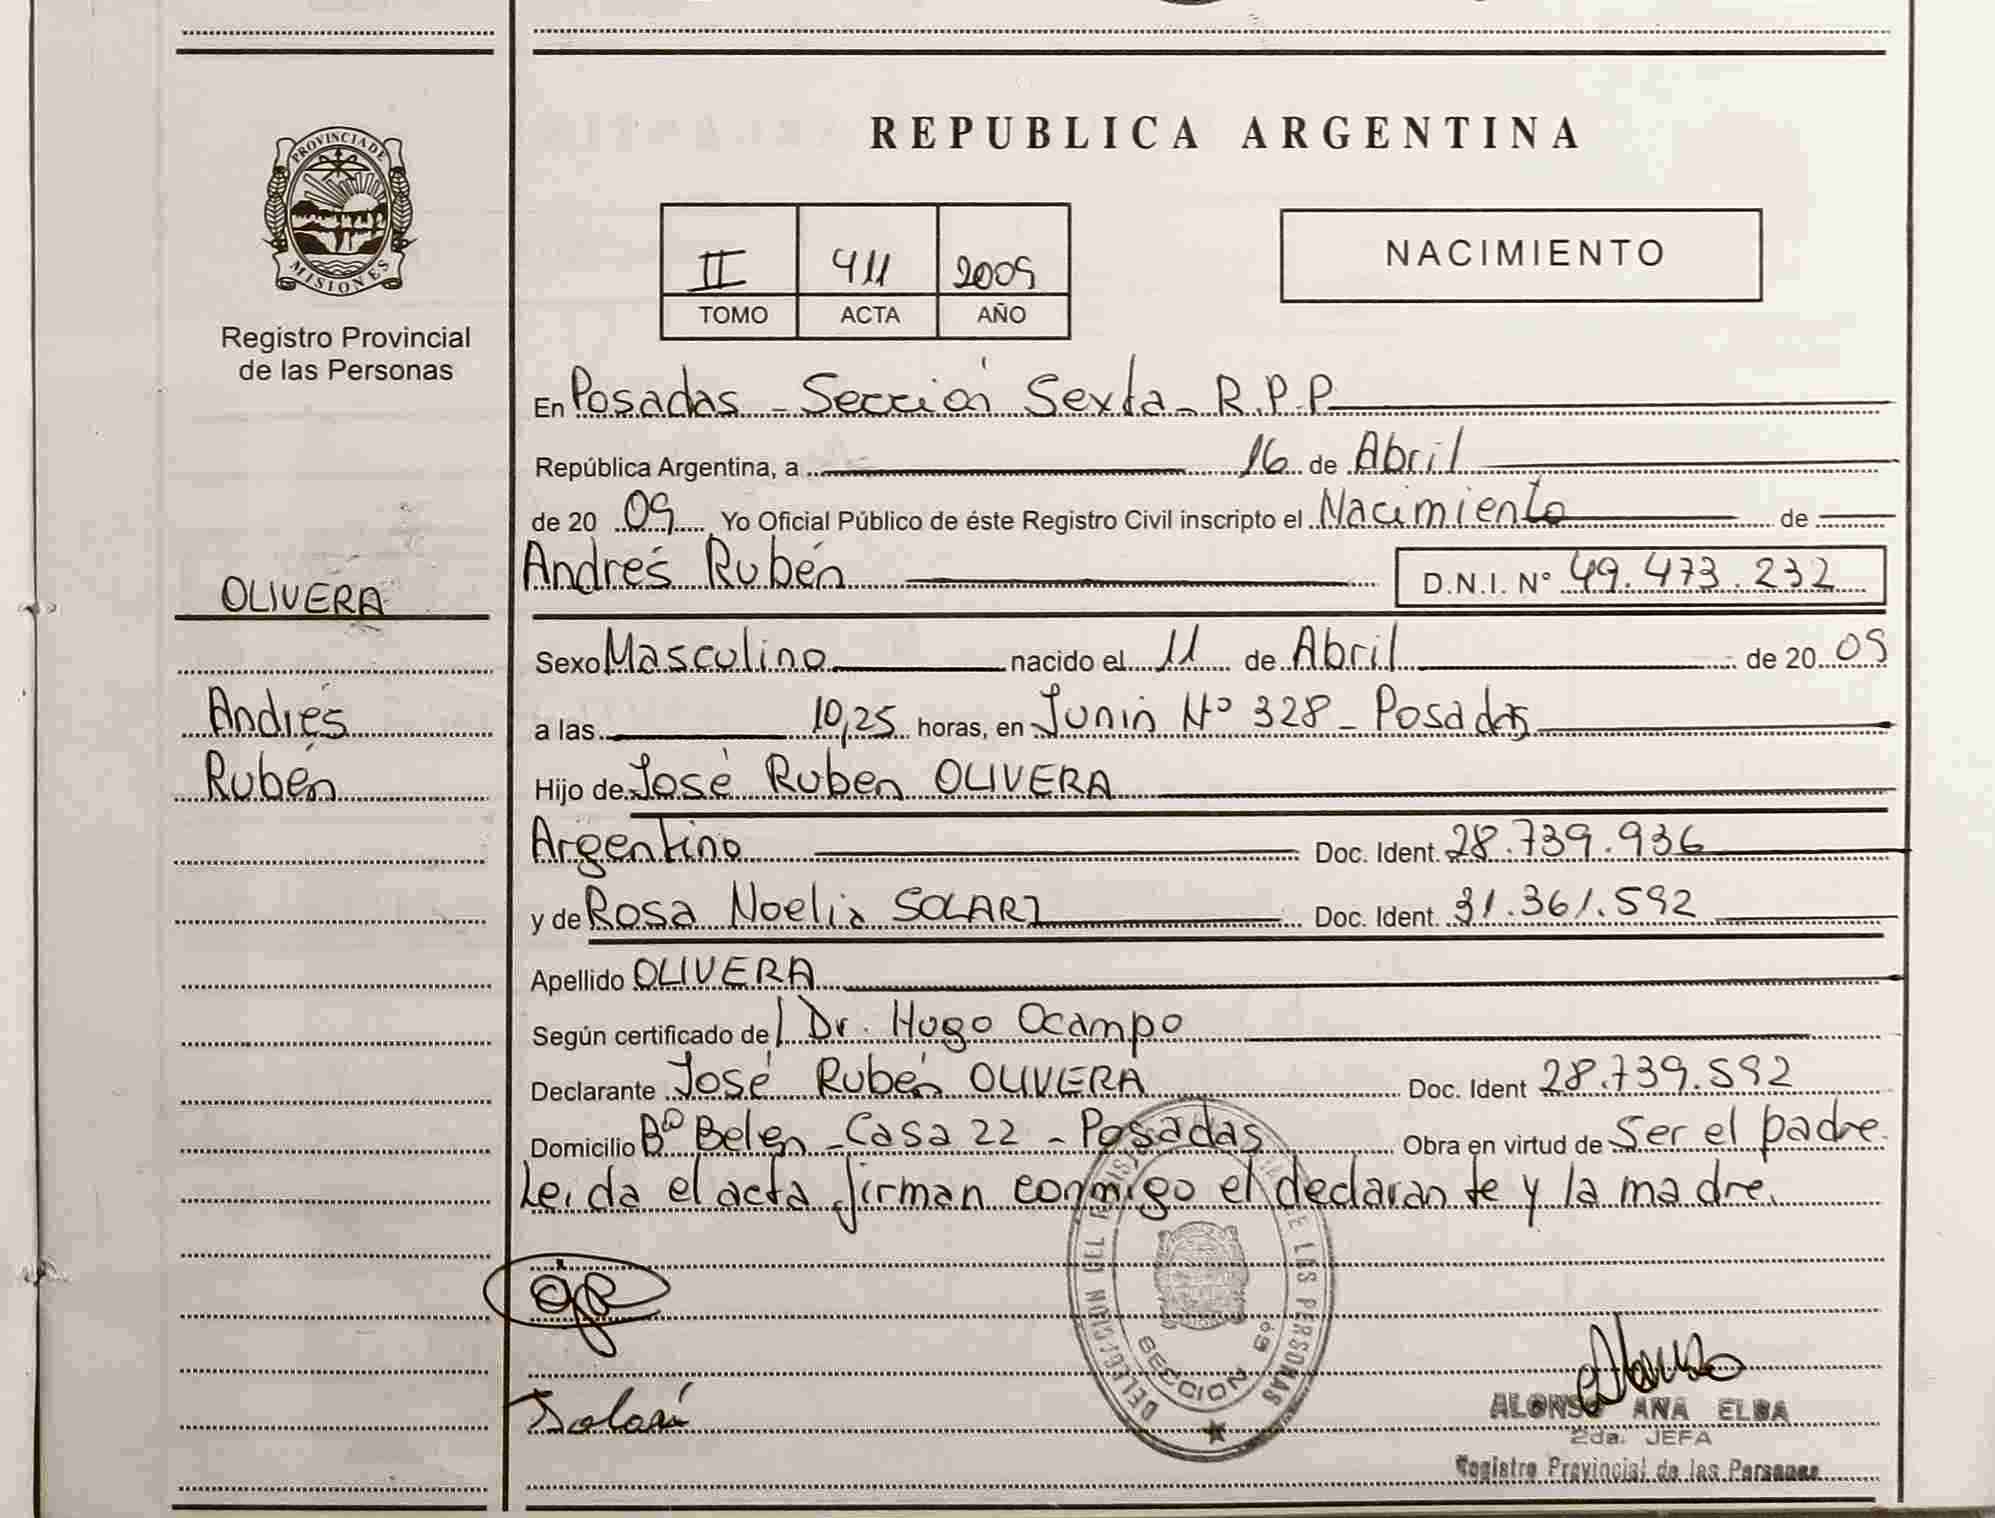 PROVINCIA DE
MISIONES
Registro Provincial
de las Personas
OLIVERA
Andrés
Rubén
REPUBLICA ARGENTINA
II 411 2009
TOMO ACTA AÑO
NACIMIENTO
En Posadas - Sección Sexta - R.P.P
República Argentina, a 16 de Abril
de 20 09 Yo Oficial Público de éste Registro Civil inscripto el Nacimiento de
Andrés Rubén D.N.I. N° 49.473.232
Sexo Masculino nacido el 11 de Abril de 20 09
a las 10,25 horas, en Junin N° 328 - Posadas
Hijo de José Ruben OLIVERA
Argentino Doc. Ident. 28.739.936
y de Rosa Noelia SOLARI Doc. Ident. 31.361.592
Apellido OLIVERA
Según certificado de Dr. Hugo Ocampo
Declarante José Rubén OLIVERA Doc. Ident 28.739.592
Domicilio B° Belen - Casa 22 - Posadas Obra en virtud de Ser el padre.
Leida el acta firman conmigo el declarante y la madre.
DELEGACION DEL REGISTRO DE LAS PERSONAS
SECCION 6°
Solari
ALONSO ANA ELBA
2da. JEFA
Registro Provincial de las Personas